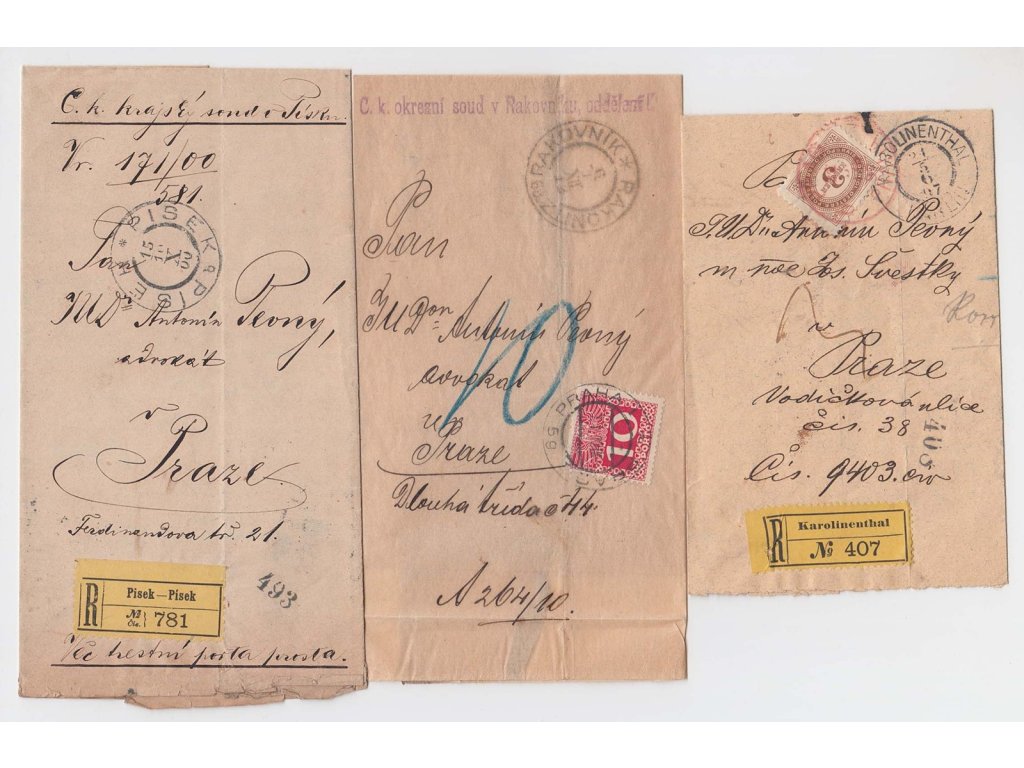 C. k. krajský soud v Písku.
Vr. 171/00
581.
* PISEK * PÍSEK
15
X
00
Pan
JUDr Antonín Pevný,
advokát
v
Praze.
Ferdinandova tř. 21.
R
Pisek—Písek
№
Čís.
781
493
Věc trestní porta prosta.
C. k. okresní soud v Rakovníku, oddělení I.
RAKOVNÍK * RAKONITZ
Pan
JUDon Antonín Pevný
advokát
v
Praze
Dlouhá třída č 44.
10
PRAHA
59
10
PORTO
A 264/10.
KAROLINENTHAL
21
6
97
5
P
J.U.Dr Antonín Pevný
m noe Js. Švestky
v
Praze
Vodičkova ulice
čís. 38
408
Čís. 9403. civ
R
Karolinenthal
№ 407